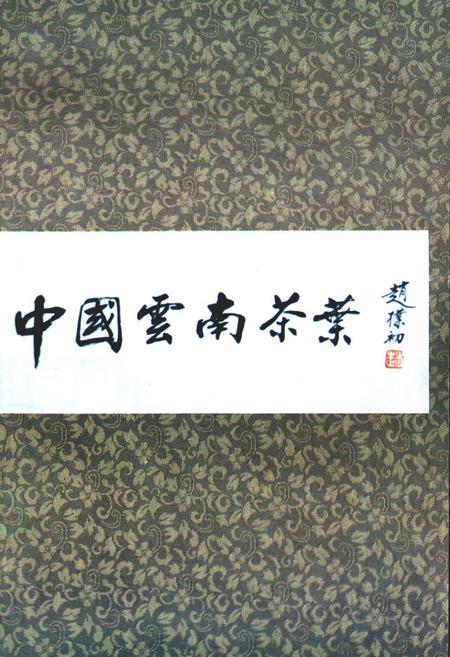 中國雲南茶葉
趙樸初